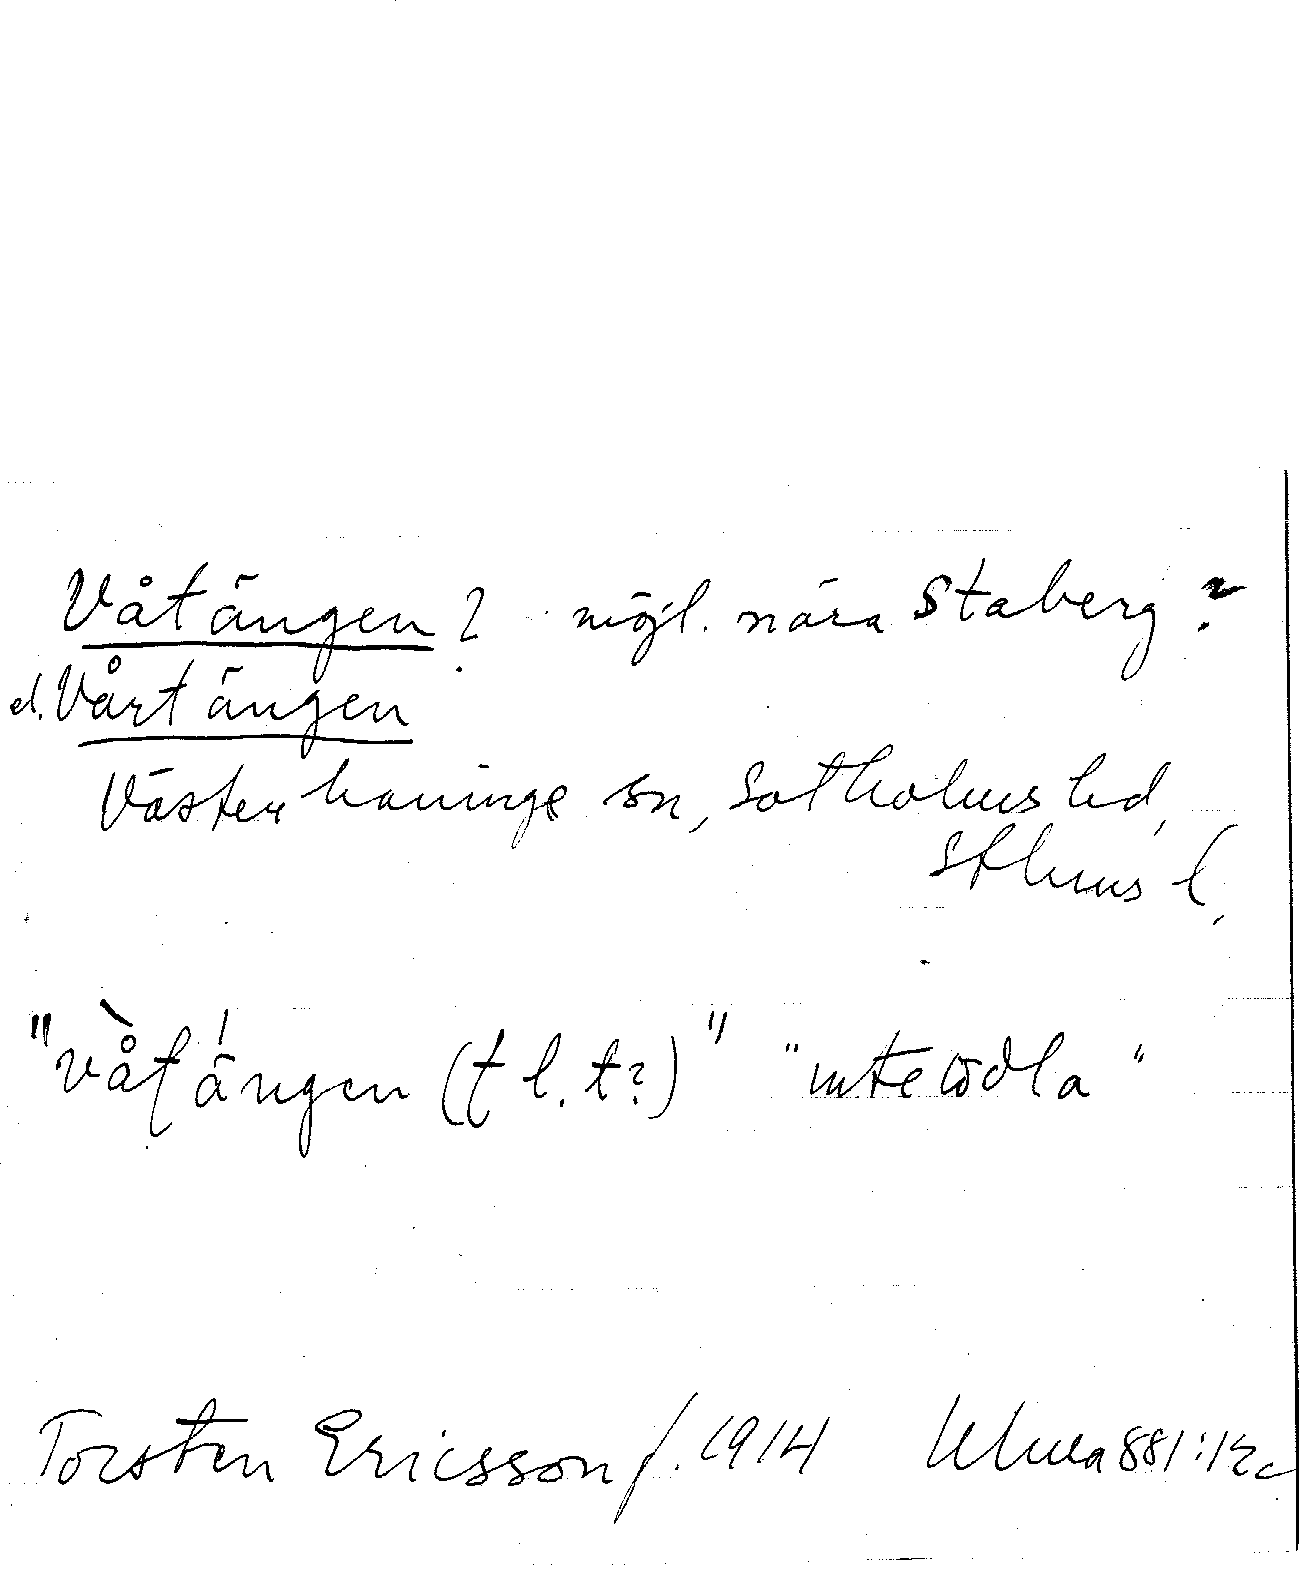 Våtängen? möjl. nära Staberg?
el. Vårtängen
Västerhaninge sn, Sotholms hd,
Sthms l,
"vå̀tä́ngen (t l. t?)" "inte odla"
Torsten Ericsson f. 1914 881:12